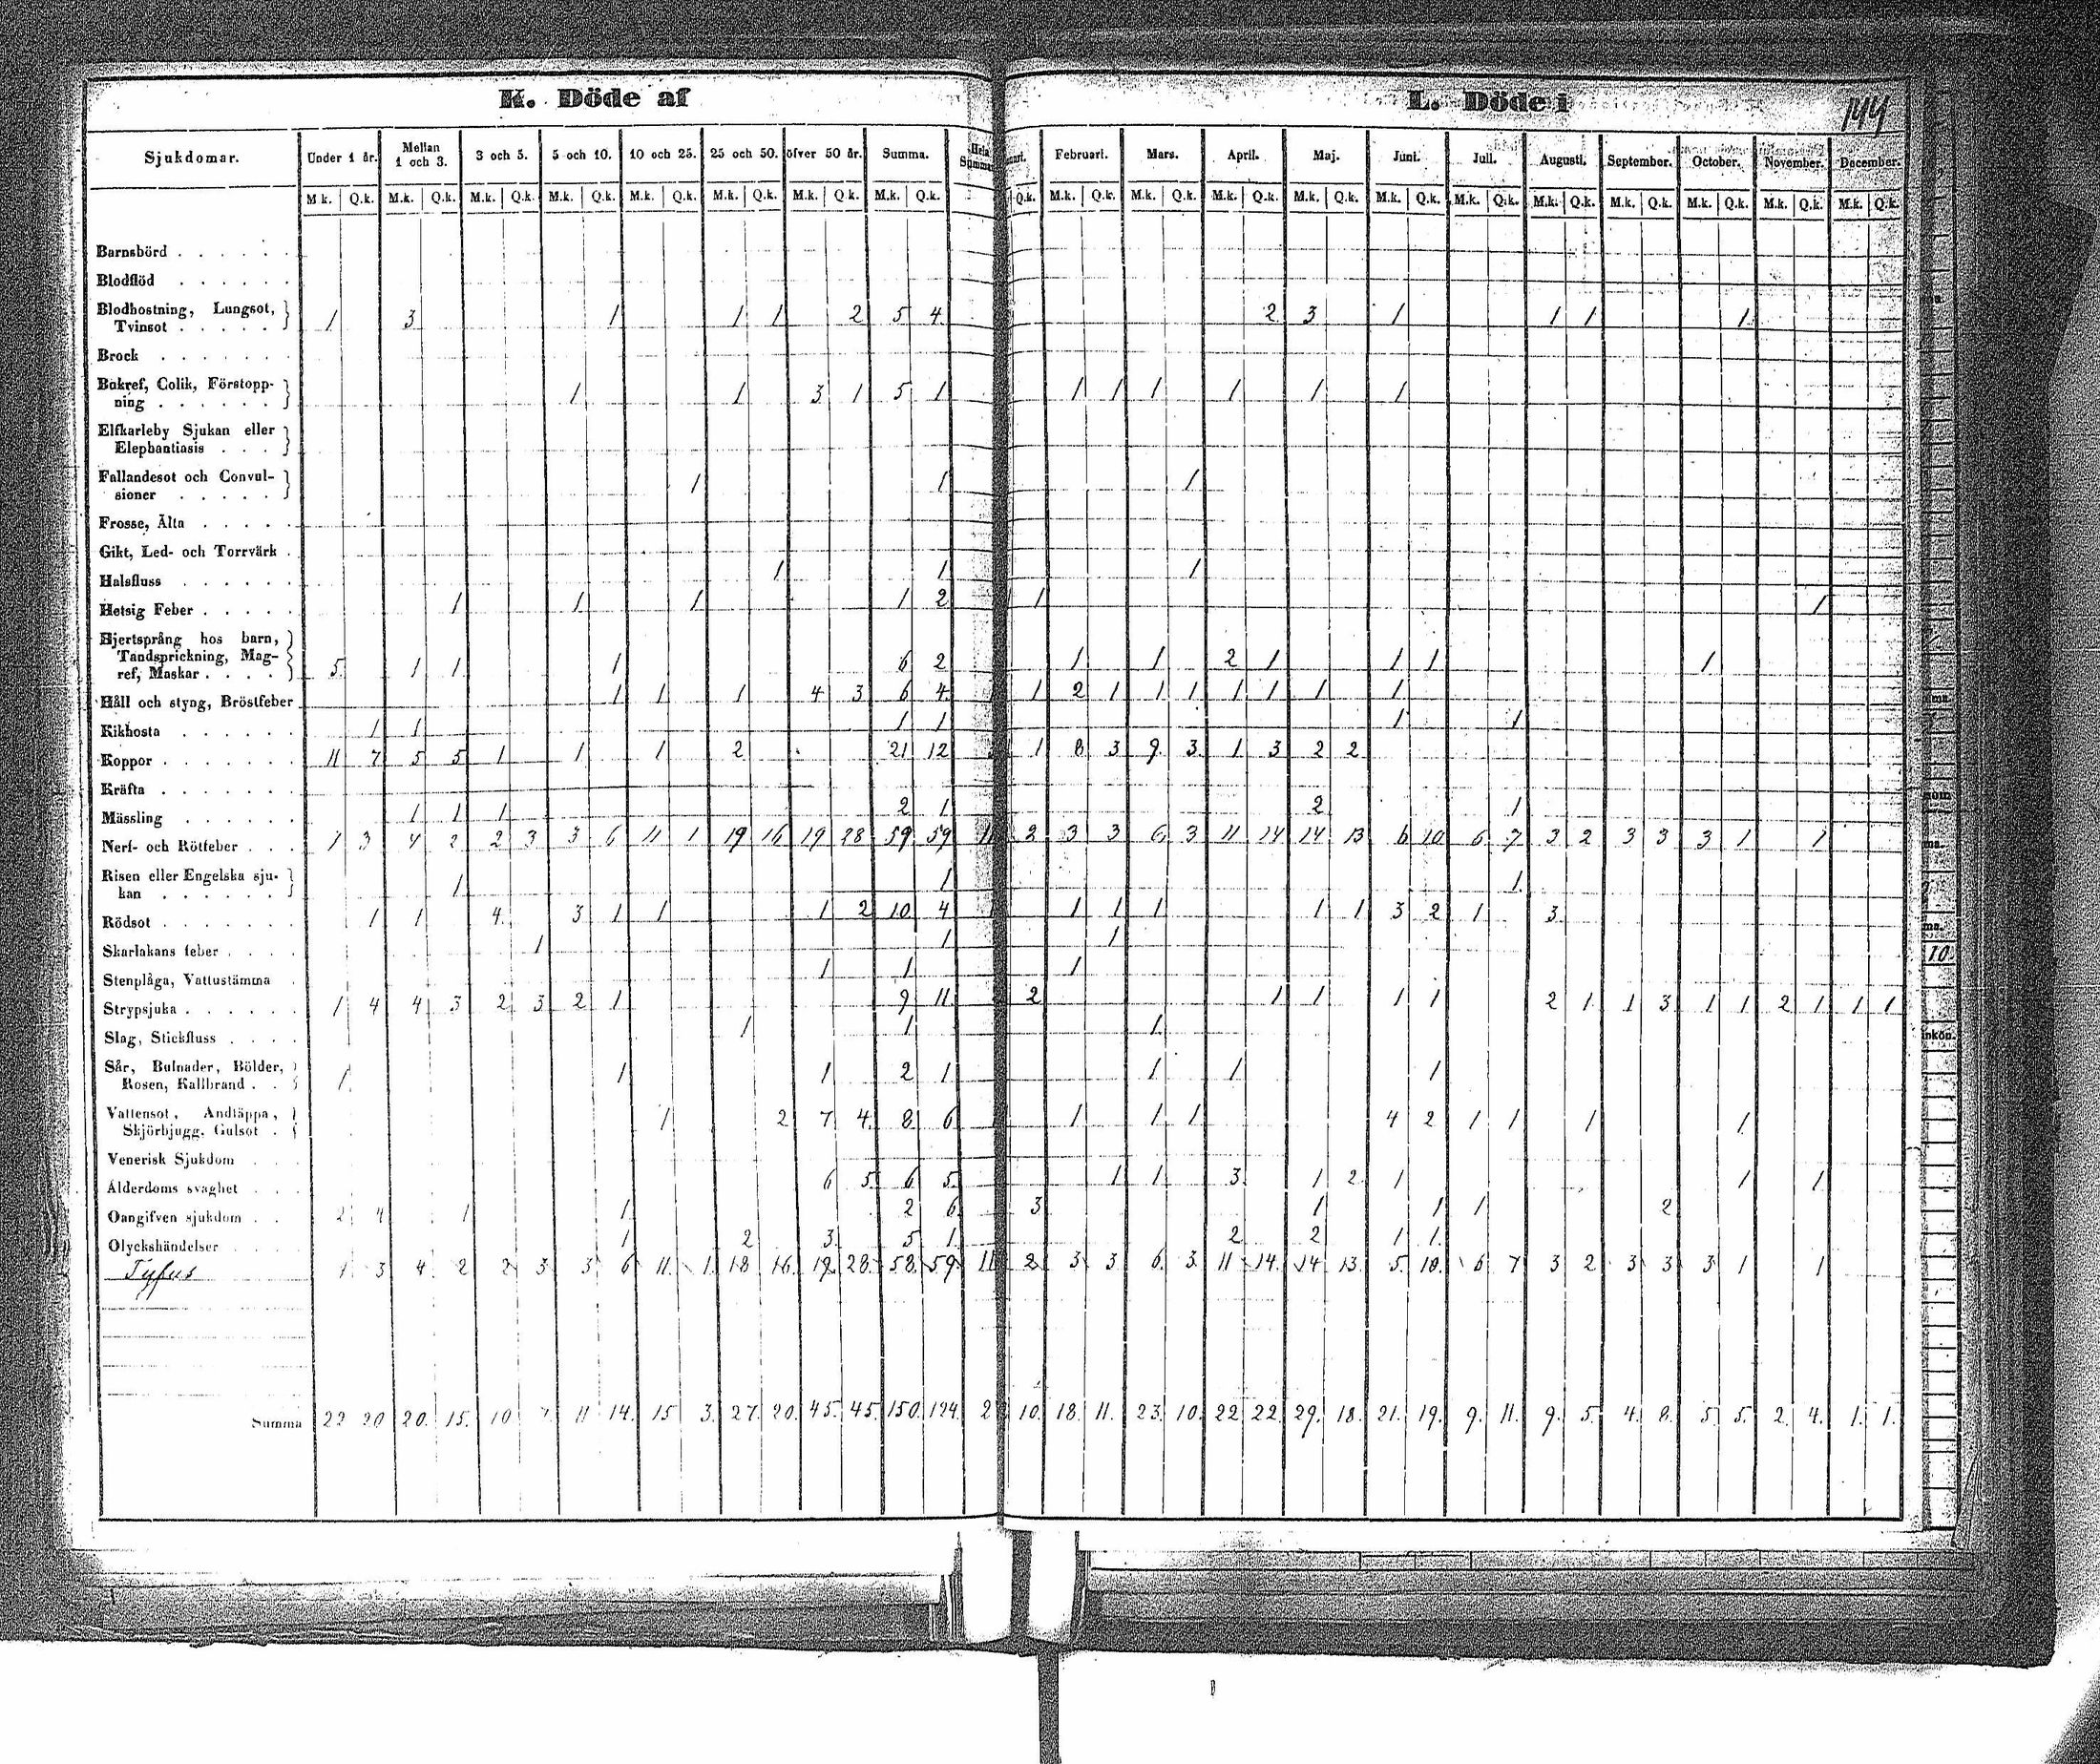 K. Döde af
L. Döde i
144
Sjukdomar. Under 1 år. Mellan 1 och 3. 3 och 5. 5 och 10. 10 och 25. 25 och 50. öfver 50 år. Summa. Hela Summa Februari. Mars. April. Maj. Juni. Juli. Augusti. September. October. November. December.
M.k. Q.k. M.k. Q.k. M.k. Q.k. M.k. Q.k. M.k. Q.k. M.k. Q.k. M.k. Q.k. M.k. Q.k. Q.k. M.k. Q.k. M.k. Q.k. M.k. Q.k. M.k. Q.k. M.k. Q.k. M.k. Q.k. M.k. Q.k. M.k. Q.k. M.k. Q.k. M.k. Q.k. M.k. Q.k.
Barnsbörd
Blodflöd
Blodhostning, Lungsot,
Tvinsot 1 3 1 1 1 2 5 4 2 3 1 1 1 1
Brock
Bukref, Colik, Förstopp-
ning 1 1 3 1 5 1 1 1 1 1 1 1
Elfkarleby Sjukan eller
Elephantiasis
Fallandesot och Convul-
sioner 1 1 1
Frosse, Älta
Gikt, Led- och Torrvärk
Halsfluss 1 1 1
Hetsig Feber 1 1 1 1 2 1 1
Hjertsprång hos barn,
Tandsprickning, Mag-
ref, Maskar 5 1 1 1 6 2 1 1 2 1 1 1 1
Håll och styng, Bröstfeber 1 1 1 4 3 6 4 1 2 1 1 1 1 1 1 1
Kikhosta 1 1 1 1 1 1
Koppor 11 7 5 5 1 1 1 2 21 12 1 8 3 9 3 1 3 2 2
Kräfta
Mässling 1 1 1 2 1 2 1
Nerf- och Rötfeber 1 3 4 2 2 3 3 6 11 1 19 16 19 28 59 59 11 2 3 3 6 3 11 14 14 13 6 10 6 7 3 2 3 3 3 1 1
Risen eller Engelska sju-
kan 1 1 1
Rödsot 1 1 4 3 1 1 1 2 10 4 1 1 1 1 1 3 2 1 3
Skarlakans feber 1 1 1
Stenplåga, Vattustämma 1 1 1
Strypsjuka 1 4 4 3 2 3 2 1 9 11 2 1 1 1 1 2 1 1 3 1 1 2 1 1 1
Slag, Stickfluss 1 1 1
Sår, Bulnader, Bölder,
Rosen, Kallbrand 1 1 1 2 1 1 1 1
Vattensot, Andtäppa,
Skjörbjugg, Gulsot 1 2 7 4 8 6 1 1 1 4 2 1 1 1 1
Venerisk Sjukdom
Ålderdoms svaghet 6 5 6 5 1 1 3 1 2 1 1 1
Oangifven sjukdom 2 4 1 1 2 6 3 1 1 1 2
Olyckshändelser 1 2 3 5 1 2 2 1 1
Tyfus 1 3 4 2 2 3 3 6 11 1 18 16 19 28 58 59 11 2 3 3 6 3 11 14 14 13 5 10 6 7 3 2 3 3 3 1 1
Summa 22 20 20. 15. 10 7 11 14. 15 3. 27. 20. 45. 45. 150. 124. 2 10. 18. 11. 23. 10. 22 22 29. 18. 21. 19. 9. 11. 9. 5. 4. 8. 5 5. 2. 4. 1. 1.
10